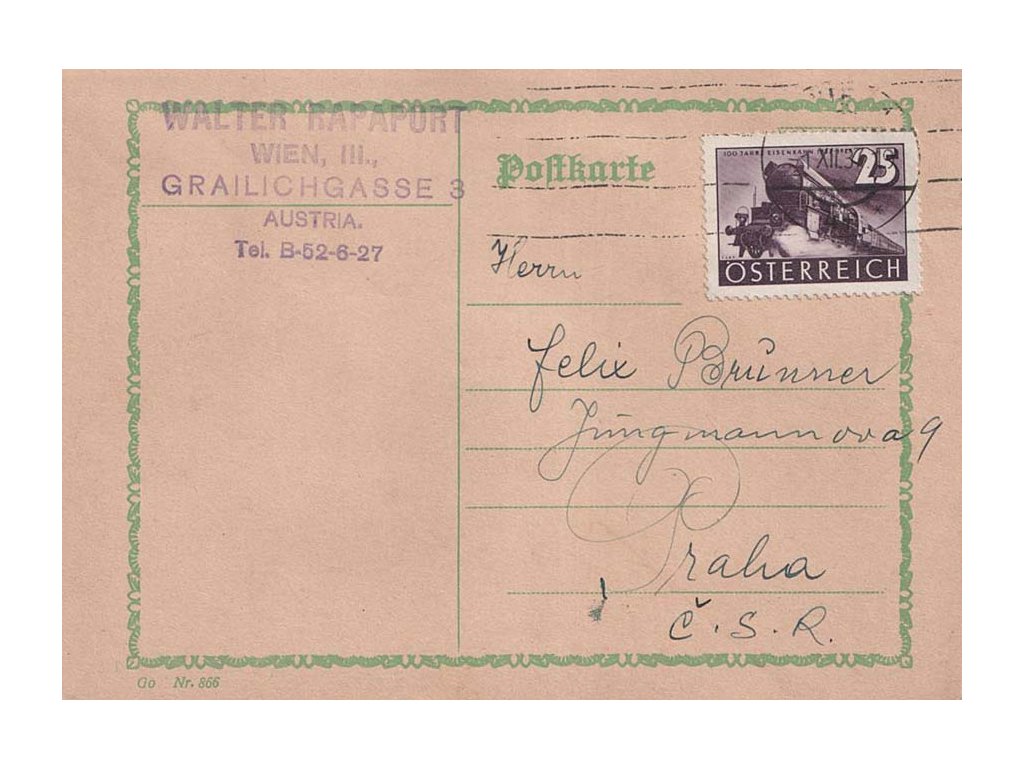 WALTER RAPAPORT
WIEN, III.,
GRAILICHGASSE 3
AUSTRIA.
Tel. B-52-6-27
Postkarte
100 JAHRE EISENBAHN
XII.3
25
ÖSTERREICH
Herrn
Felix Brünner
Jungmannova 9
Praha
Č.S.R.
Go Nr. 866